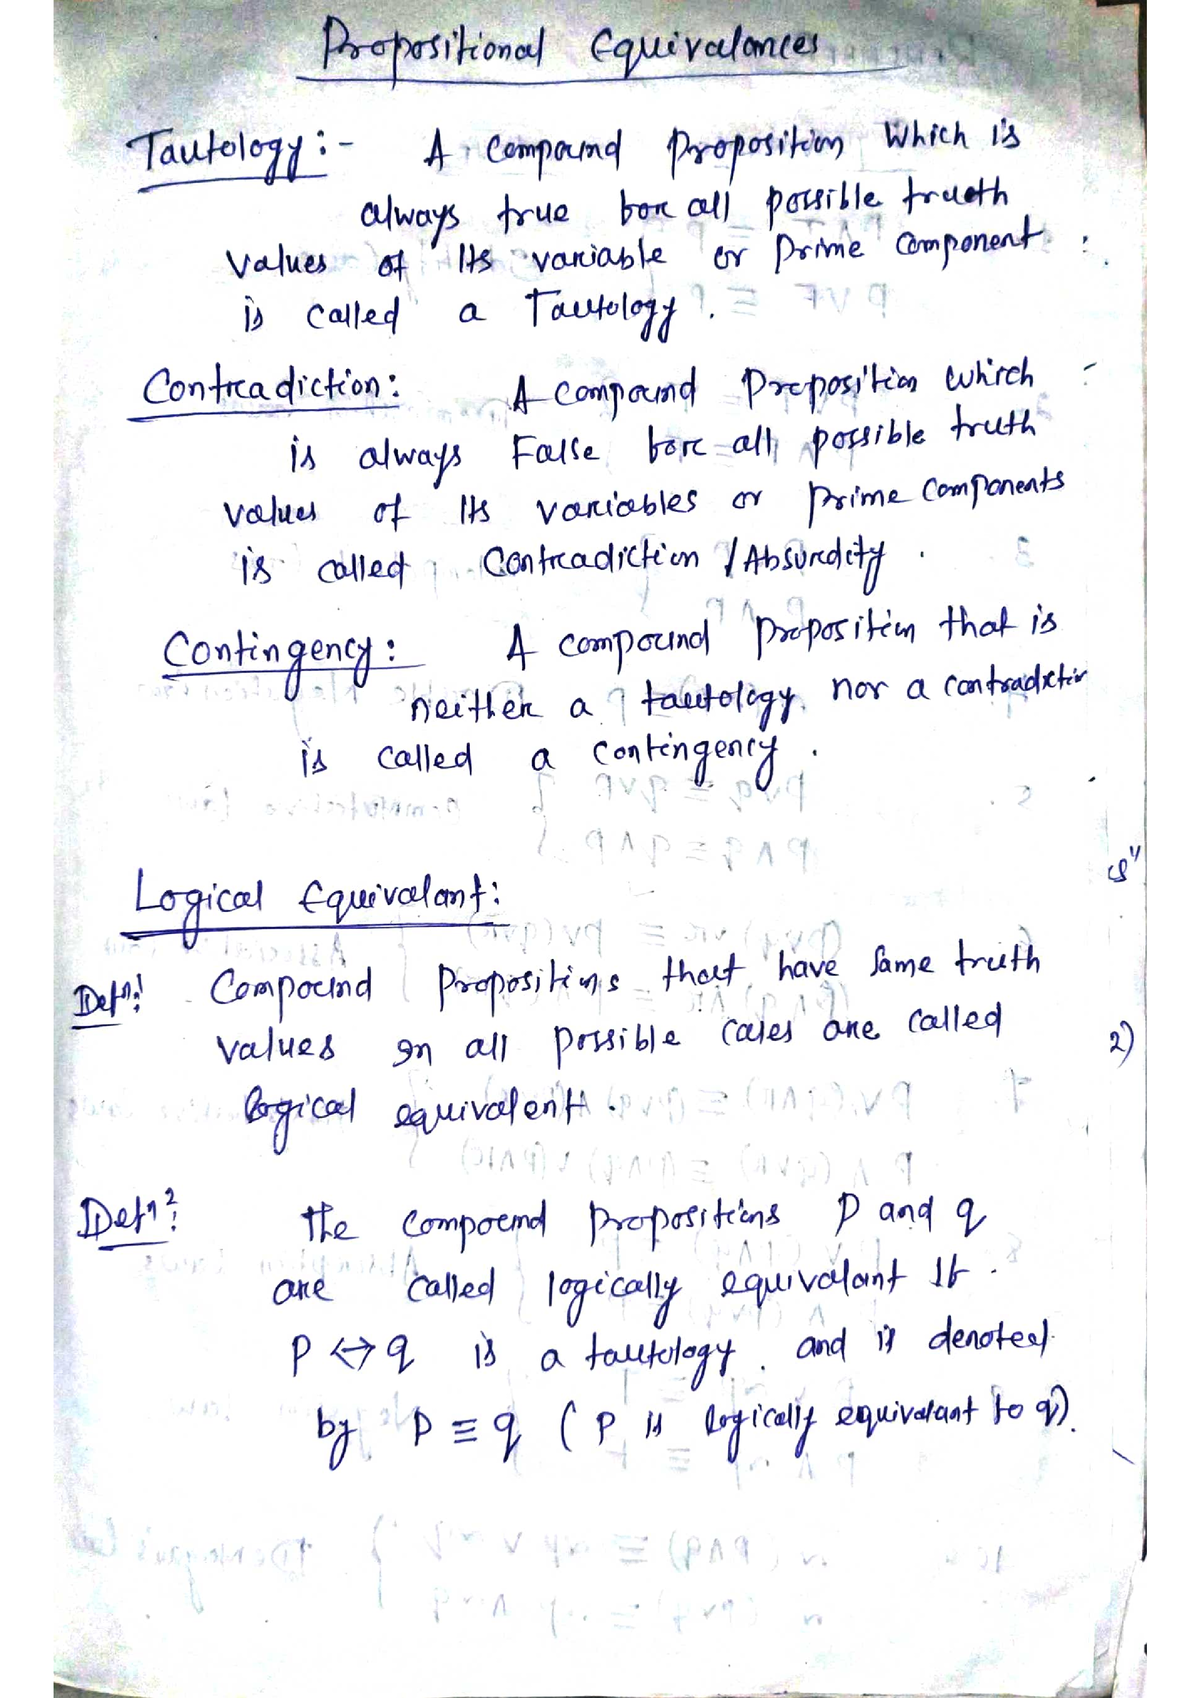 Propositional Equivalances
Tautology :- A compound proposition which is
always true for all possible trueth
values of Its variable or prime component
is called a Tautology.
Contradiction: A compound proposition which
is always False for all possible truth
values of Its variables or prime components
is called Contradiction / Absurdity.
Contingency: A compound proposition that is
neither a tautology nor a contradiction
is called a contingency.
Logical Equivalant:
Defn 1: Compound propositions that have same truth
values In all possible cases are called
logical equivalent.
2)
Defn 2: The compound propositions p and q
are called logically equivalant If
P ↔ q is a tautology. and is denoted
by P ≡ q ( P is logically equivalant to q).